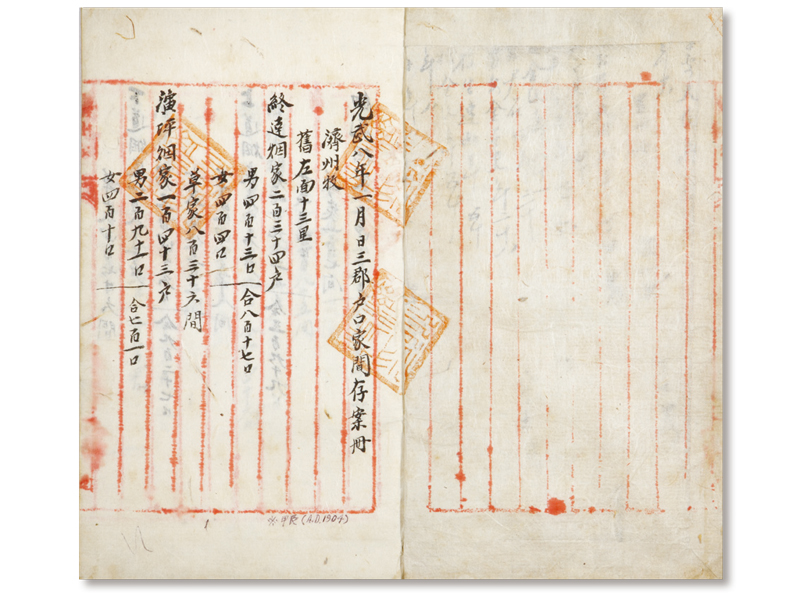 光武八年一月 日三郡戶口家間存案冊
濟州牧
舊左面十三里
終達烟家二百三十四戶
男四百十三口
合八百十七口
女四百四口
草家八百三十六間
演坪烟家一百四十三戶
男二百九十一口
合七百一口
女四百十口
(A.D. 1904)
1